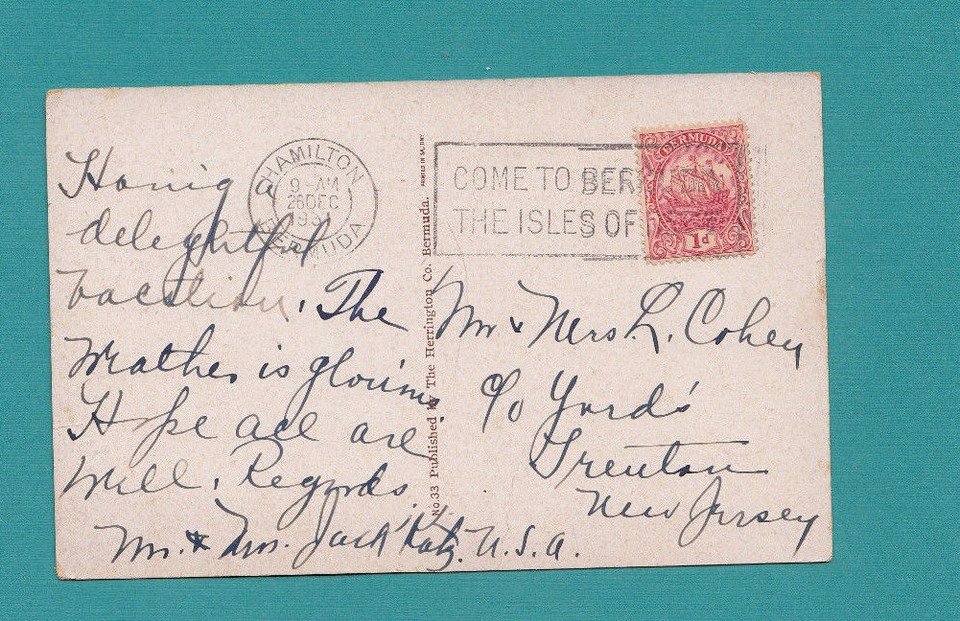 Having a
delightful
vacation. The
Weather is glorious.
Hope all are
well. Regards.
Mr. & Mrs. Jack Katz.
HAMILTON
9-AM
26 DEC
BERMUDA
PRINTED IN SAXONY
No.33 Published by The Herrington Co. Bermuda.
COME TO BER
THE ISLES OF
BERMUDA
1d
Mr & Mrs. L. Cohen
c/o Yard's
Trenton
New Jersey
U.S.A.